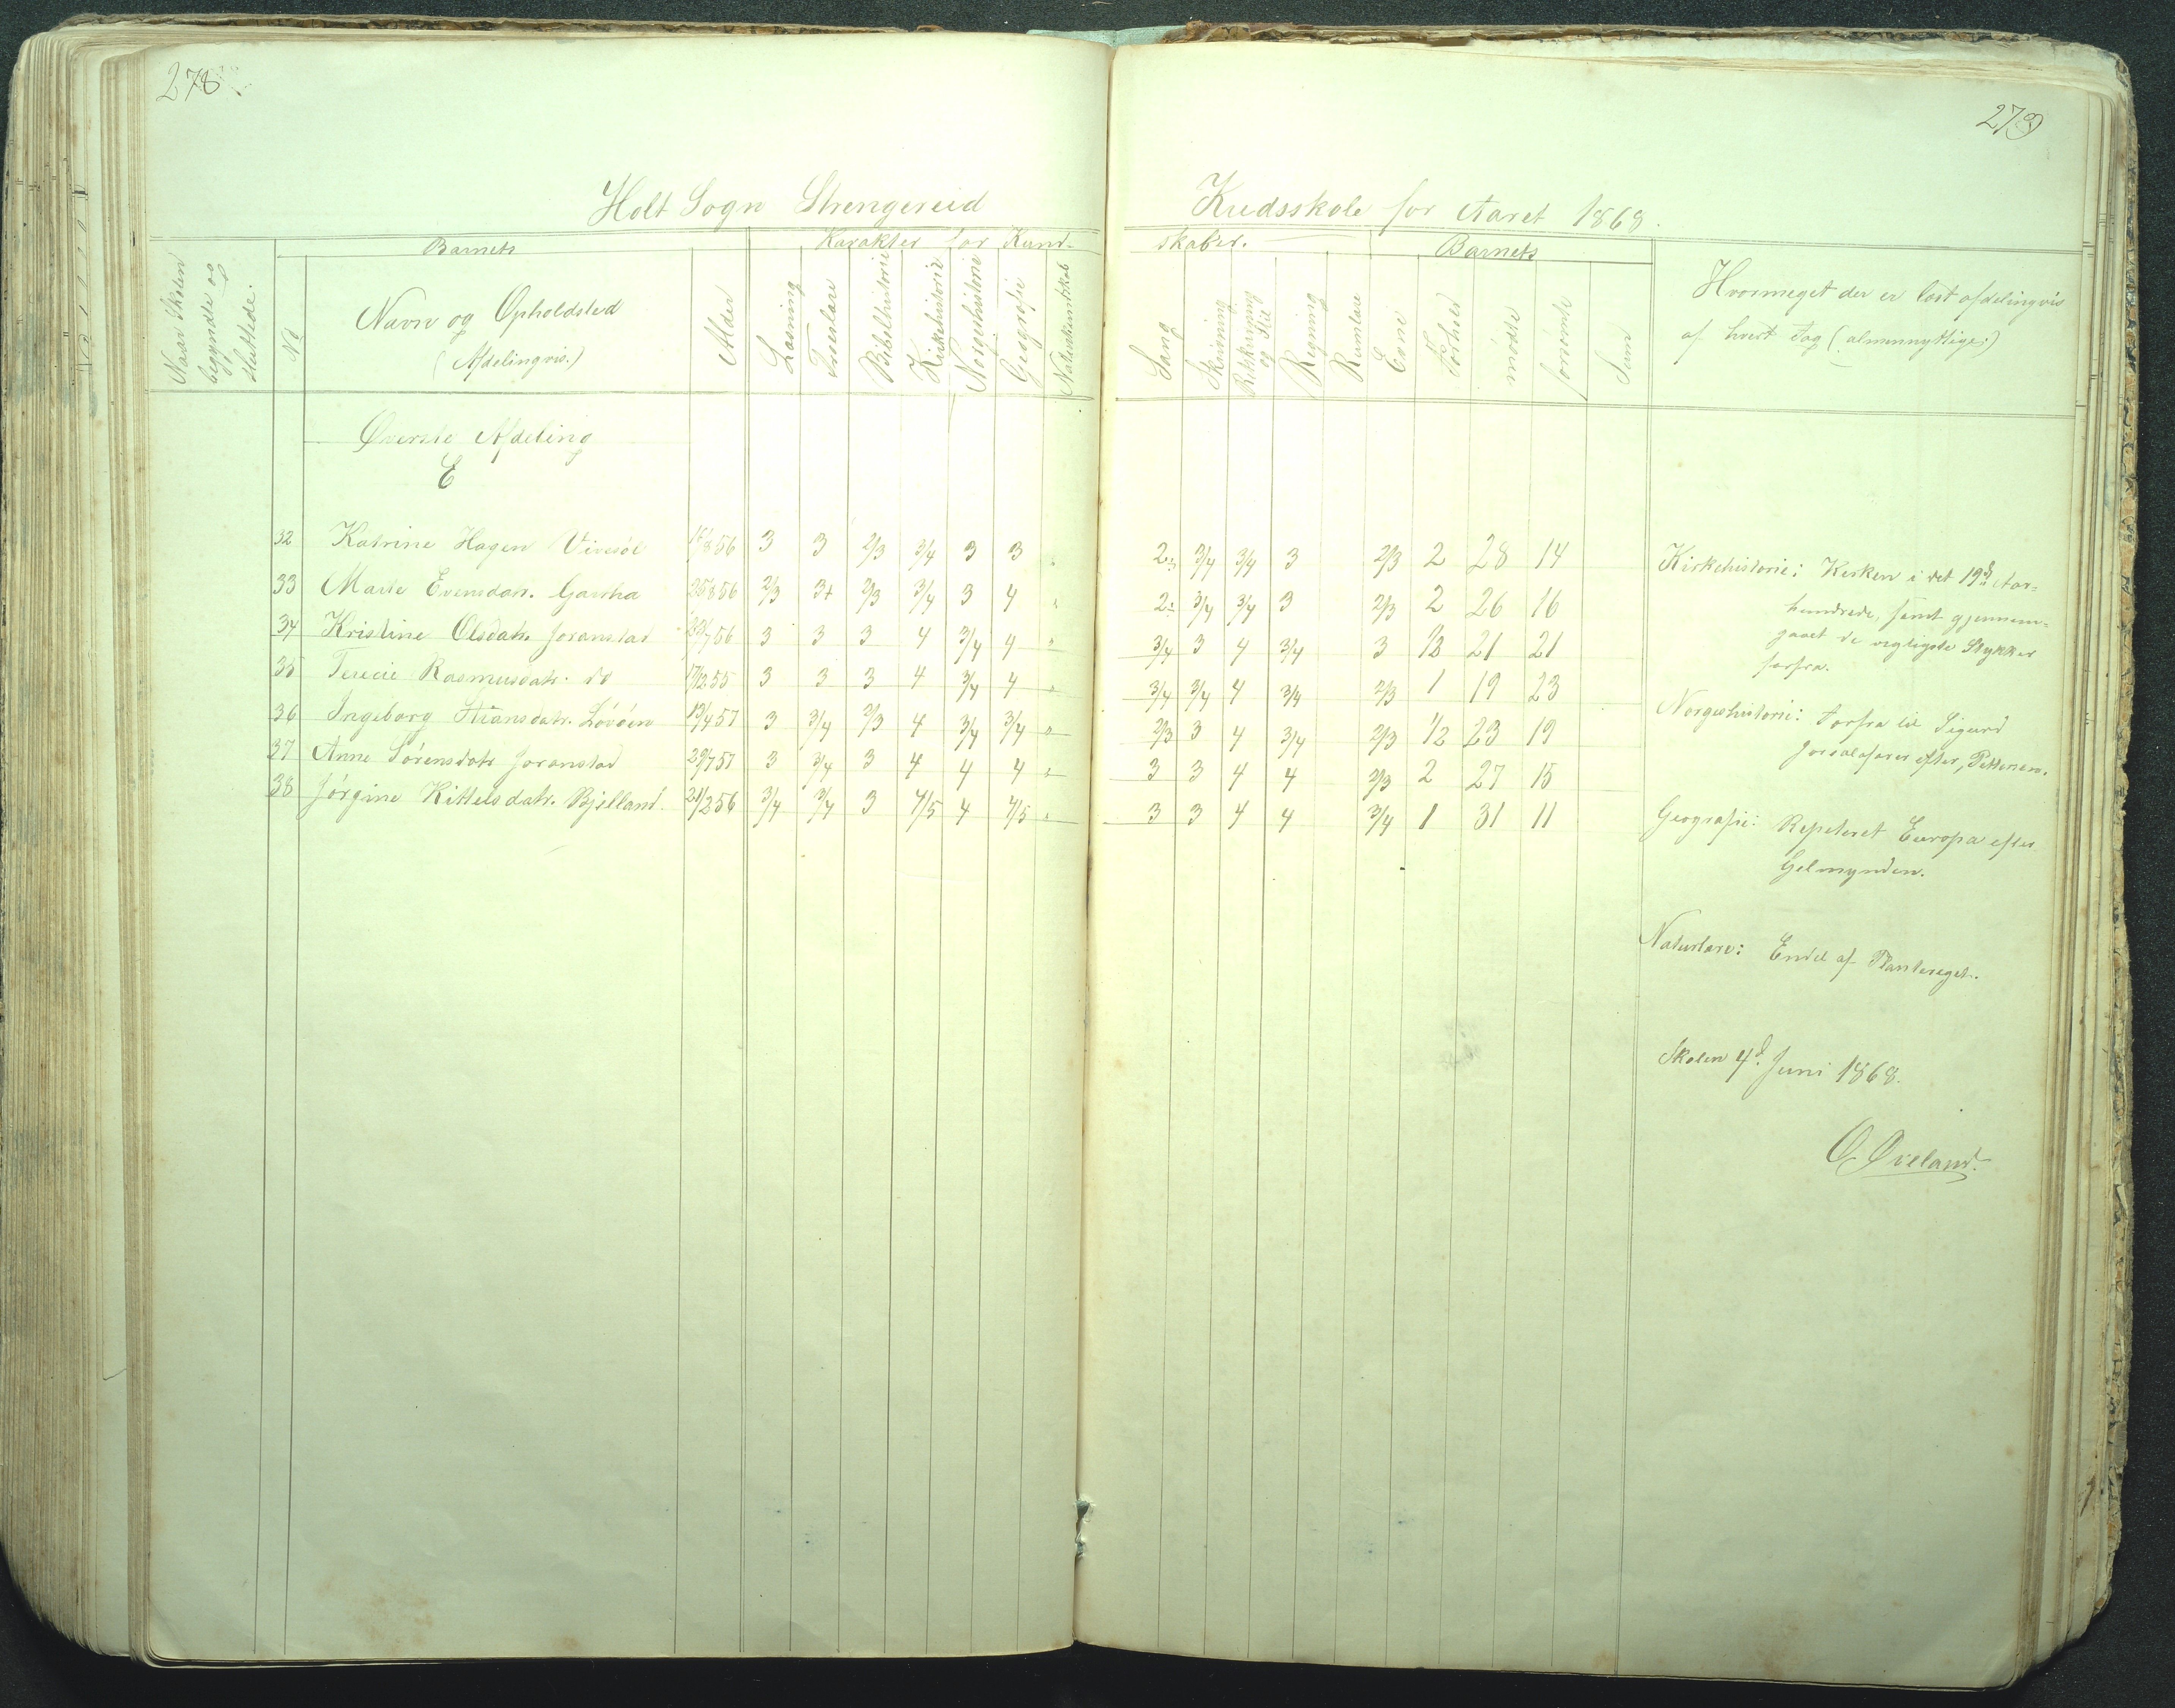 278
279
Holt Sogn Strengereid Kredsskole for Aaret 1868.
Naar Skolen begyndte og sluttede.
No
Barnets
Navn og Opholdsted
(Afdelingvis.)
Alder
Karakter for Kundskaber.
Læsning
Troeslære
Bibelhistorie
Kirkehistorie
Norgeshistorie
Geografie
Naturkundskab
Sang
Skrivning
Retskrivning og Stil
Regning
Rumlære
Barnets
Evne
Forhold
mødte
forsømte
Sum
Hvormeget der er læst afdelingvis
af hvert Fag (almennyttige.)
Øverste Afdeling
E
32 Katrine Hagen Viresøl 856 3 3 2/3 3/4 3 3 " 2 3/4 3/4 3 2/3 2 28 14
33 Marte Evensdatr. Gaasha 25/856 2/3 3+ 2/3 3/4 3 4 " 2 3/4 3/4 3 2/3 2 26 16
34 Kristine Olsdatr. Joranstad 23/756 3 3 3 4 3/4 4 " 3/4 3 4 3/4 3 1/2 21 21
35 Terecie Rasmusdatr. do 17/1255 3 3 3 4 3/4 4 " 3/4 3/4 4 3/4 2/3 1 19 23
36 Ingeborg Hansdatr. Løvøen 13/457 3 3/4 2/3 4 3/4 3/4 " 2/3 3 4 3/4 2/3 1/2 23 19
37 Anne Sørensdatr Joranstad 29/757 3 3/4 3 4 4 4 " 3 3 4 4 2/3 2 27 15
38 Jørgine Kittelsdatr. Bjelland. 21/256 3/4 3/4 3 4/5 4 4/5 " 3 3 4 4 3/4 1 31 11
Kirkehistorie: Kirken i det 19d Aar-
hundrede, samt gjennem-
gaaet de vigtigste Stykker
forfra.
Norgeshistorie: Forfra til Sigurd
Jorsalafarer efter Pettersen.
Geografie: Repeteret Europa efter
Gelmynden.
Naturlære: Endel af Planteriget.
Skolen 4d Juni 1868.
O. Øveland.